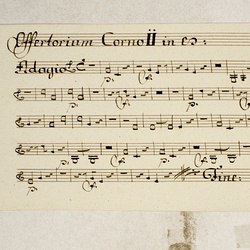 Offertorium Corno II in e♭:
Adagio
Fine: